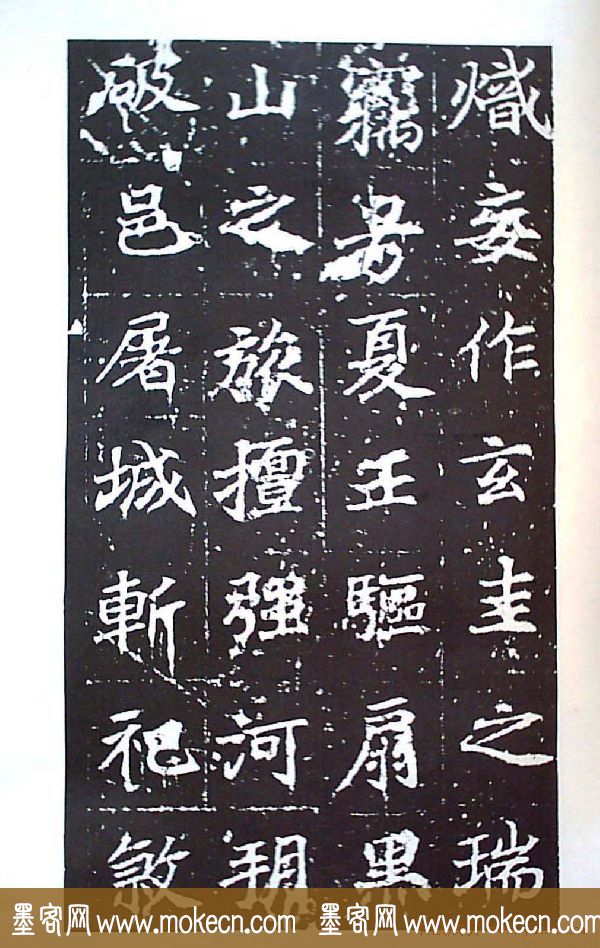 熾妄作玄圭之瑞
竊号夏王驅扇黑
山之旅擅强河朔
破邑屠城斬祀
墨客网 www.mokecn.com 墨客网 www.mokecn.com